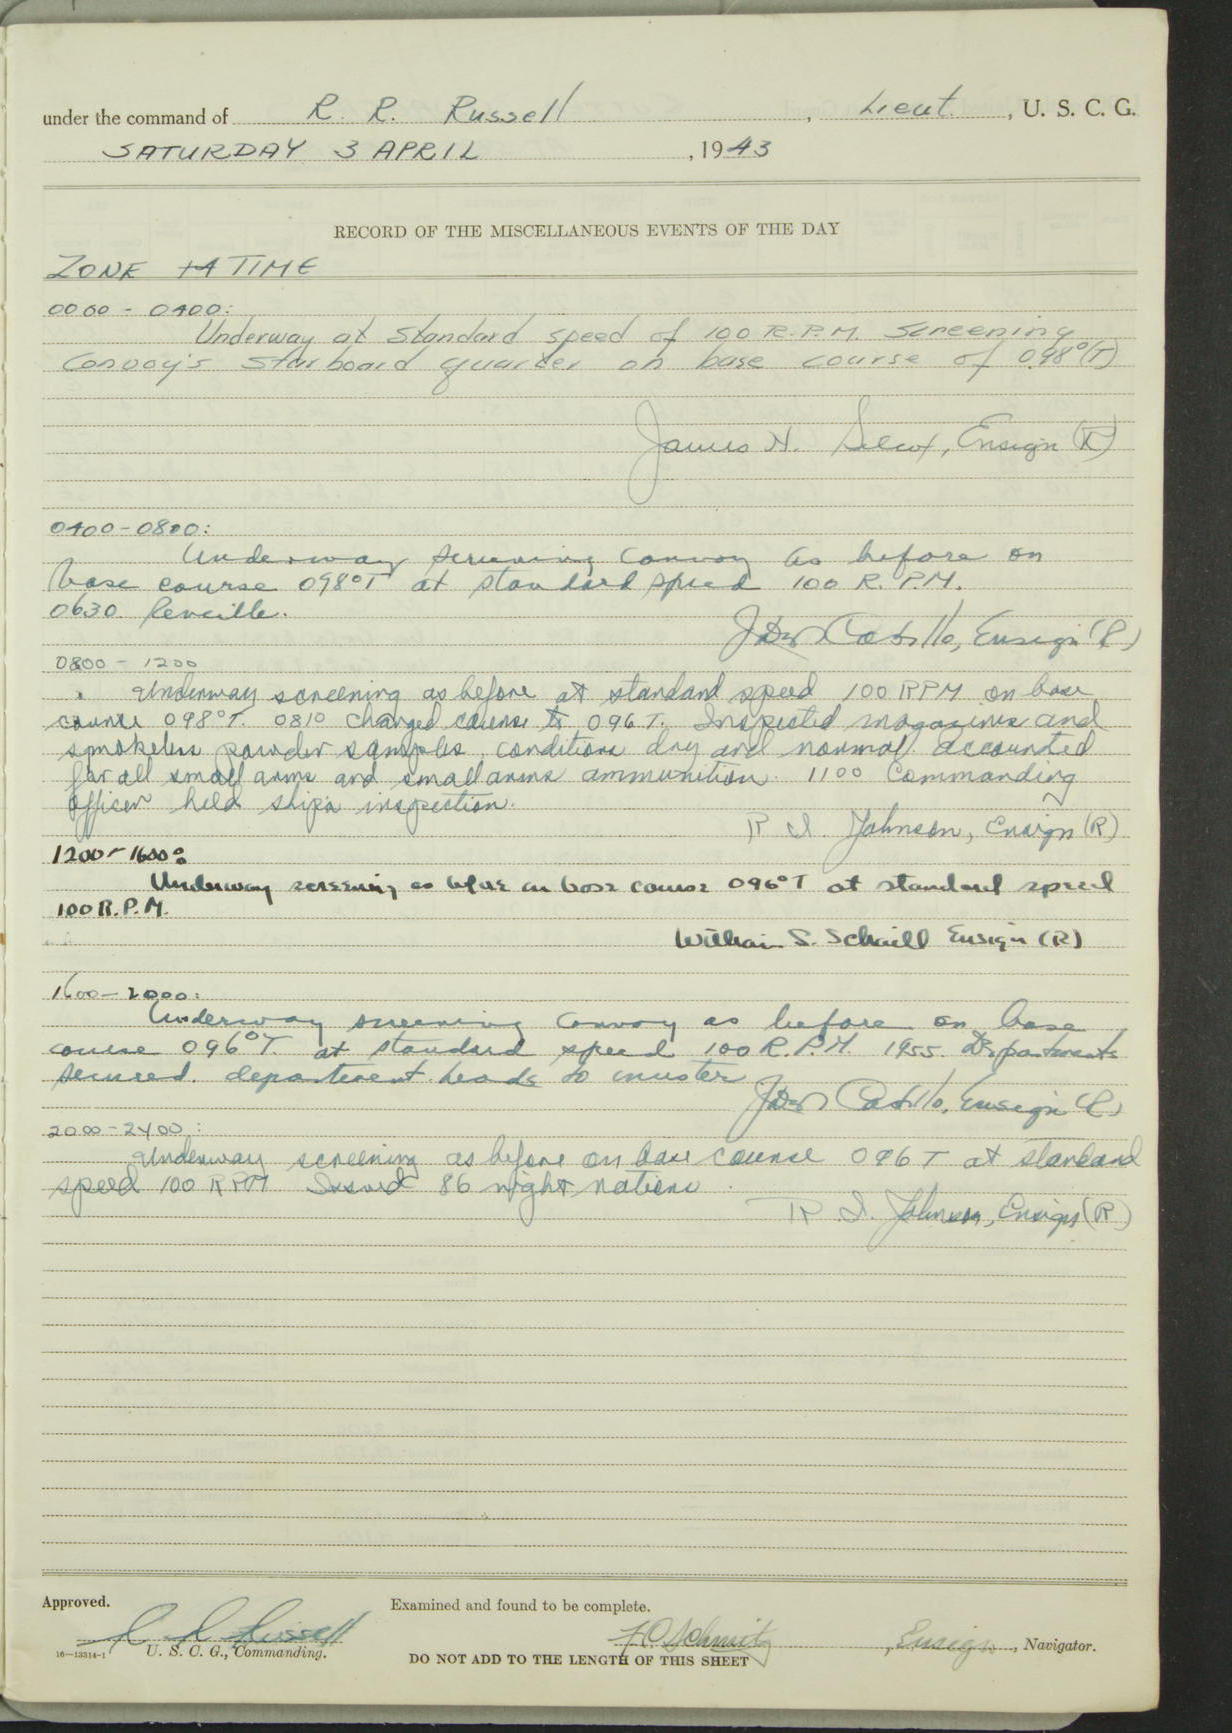 under the command of R. R. Russell, Lieut., U. S. C. G.
SATURDAY 3 APRIL, 1943
RECORD OF THE MISCELLANEOUS EVENTS OF THE DAY
ZONE +4 TIME
0000 - 0400:
Underway at Standard speed of 100 R.P.M. Screening
Convoy's Starboard quarter on base course of 098°(T)
James H. Silcox, Ensign (R)
0400-0800:
Underway screening convoy as before on
base course 098°T at standard speed 100 R.P.M.
0630 Reveille.
Castillo, Ensign (R)
0800 - 1200
Underway screening as before at standard speed 100 RPM on base
course 098°T. 0810 changed course to 096 T. Inspected magazines and
smokeless powder samples, conditions dry and normal. accounted
for all small arms and small arms ammunition. 1100 Commanding
officer held ship's inspection.
R I. Johnson, Ensign (R)
1200-1600:
Underway screening as before on base course 096°T at standard speed
100 R.P.M.
William S. Schaill Ensign (R)
1600-2000:
Underway screening convoy as before on base
course 096°T. at standard speed 100 R.P.M. 1955. Departments
secured. department heads to muster
Castillo, Ensign (R)
2000-2400:
Underway screening as before on base course 096 T at standard
speed 100 RPM Issued 86 night rations.
R. I. Johnson, Ensign (R)
Approved. Examined and found to be complete.
R R Russell F.O. Schmitz, Ensign, Navigator.
16—13314-1 U. S. C. G., Commanding.
DO NOT ADD TO THE LENGTH OF THIS SHEET